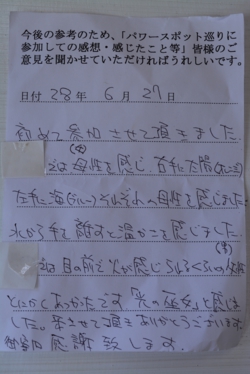 今後の参考のため、「パワースポット巡りに
参加しての感想・感じたこと等」皆様のご
意見を聞かせていただければうれしいです。
日付 28年 6月 27日
初めて参加させて頂きました
(女)
では母性を感じ、右手に太陽
左手に海 それぞれの母性を感じました
手を離すと温かさを感じました
(男)
は目の前で 感じられるくらいの
とにかくあったかです「光の巫女」と感じま
した。来させて頂きありがとうございます。
感謝致します。